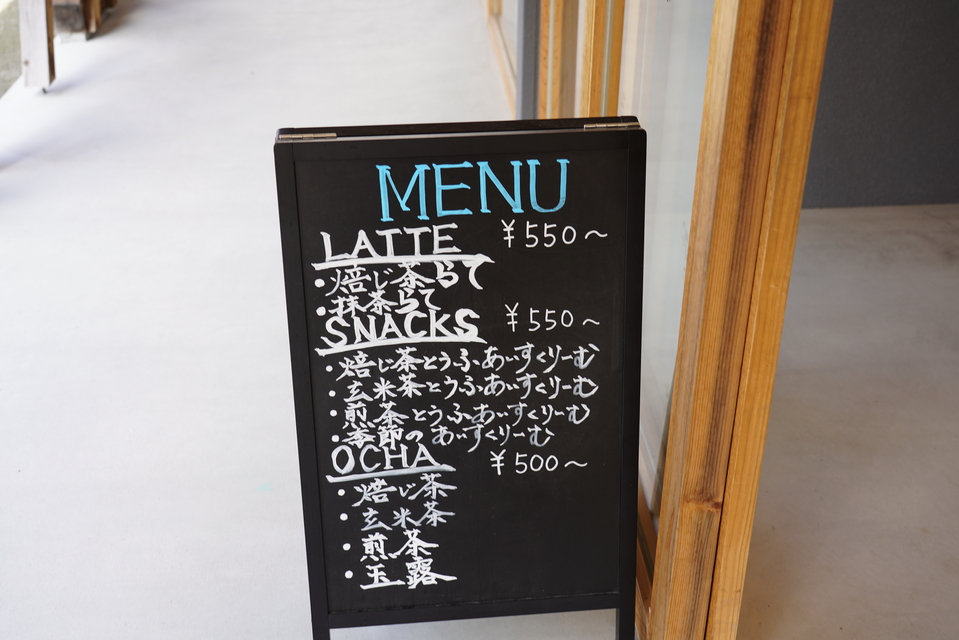 MENU
LATTE ¥550～
・焙じ茶らて
・抹茶らて
SNACKS ¥550～
・焙じ茶とうふあいすくりーむ
・玄米茶とうふあいすくりーむ
・煎茶とうふあいすくりーむ
・季節のあいすくりーむ
OCHA ¥500～
・焙じ茶
・玄米茶
・煎茶
・玉露